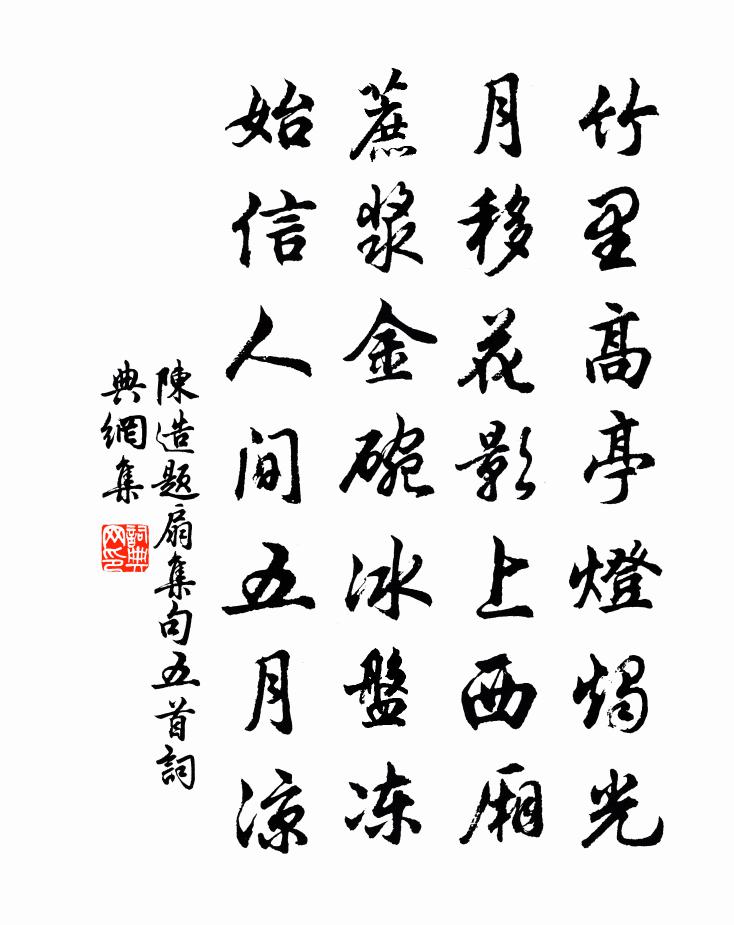 竹里高亭燈燭光
月移花影上西厢
蔗漿金碗冰盤冻
始信人间五月凉
陳造題扇集句五首詞
典網集
詞典
网印